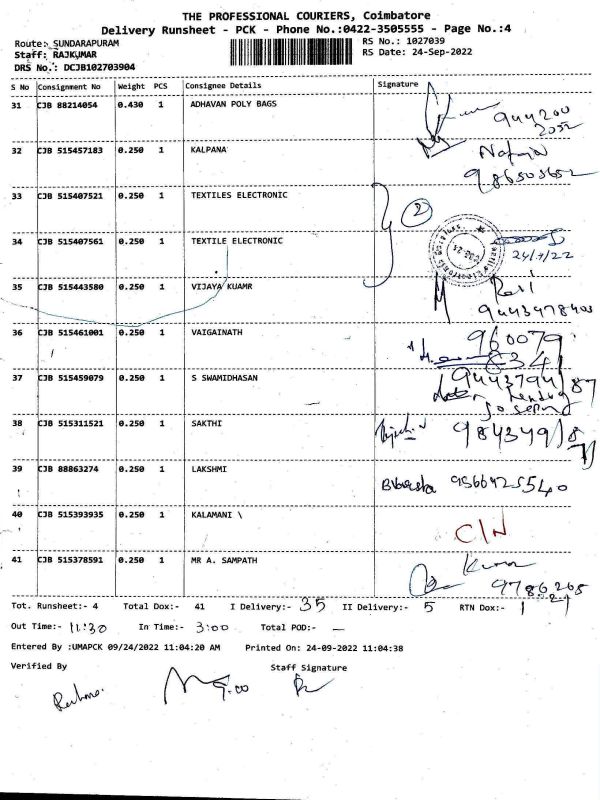 THE PROFESSIONAL COURIERS, Coimbatore
Delivery Runsheet - PCK - Phone No.:0422-3505555 - Page No.:4
Route: SUNDARAPURAM
RS No.: 1027039
Staff: RAJKUMAR
RS Date: 24-Sep-2022
DRS No.: DCJB102703904
S No Consignment No Weight PCS Consignee Details Signature
31 CJB 88214054 0.430 1 ADHAVAN POLY BAGS
944200
2032
32 CJB 515457183 0.250 1 KALPANA
33 CJB 515407521 0.250 1 TEXTILES ELECTRONIC
2
34 CJB 515407561 0.250 1 TEXTILE ELECTRONIC
35 CJB 515443580 0.250 1 VIJAYA KUAMR
Ravi
36 CJB 515461001 0.250 1 VAIGAINATH
960079
8341
37 CJB 515459079 0.250 1 S SWAMIDHASAN
9443794187
38 CJB 515311521 0.250 1 SAKTHI
39 CJB 88863274 0.250 1 LAKSHMI
40 CJB 515393935 0.250 1 KALAMANI \
C/N
41 CJB 515378591 0.250 1 MR A. SAMPATH
Tot. Runsheet:- 4 Total Dox:- 41 I Delivery:- 35 II Delivery:- 5 RTN Dox:- 1
Out Time:- 11:30 In Time:- 3:00 Total POD:- —
Entered By :UMAPCK 09/24/2022 11:04:20 AM Printed On: 24-09-2022 11:04:38
Verified By Staff Signature